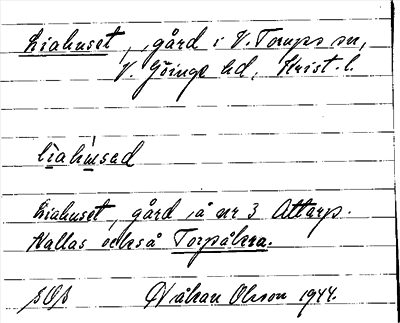 Liahuset, gård i V. Torups sn,
V. Göinge hd, Krist. l.
lìahúsad
Liahuset, gård å nr 3 Attarp.
Kallas också Torpåkra.
Håkan Olsson 1944.